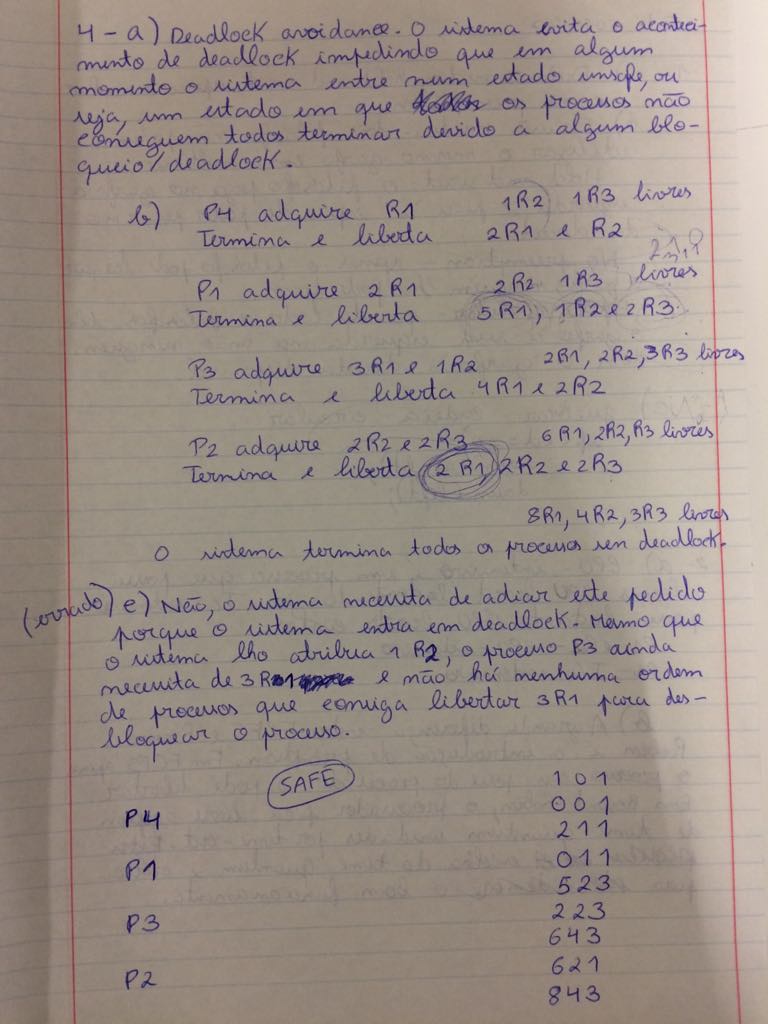 4 - a) Deadlock avoidance. O sistema evita o aconteci-
mento de deadlock impedindo que em algum
momento o sistema entre num estado unsafe, ou
seja, um estado em que os processos não
conseguem todos terminar devido a algum blo-
queio/deadlock.
b) P4 adquire R1 1R2 1R3 livres
Termina e liberta 2R1 e R2
P1 adquire 2R1 2R2 1R3 livres
Termina e liberta 5R1, 1R2 e 2R3.
P3 adquire 3R1 e 1R2 2R1, 2R2, 3R3 livres
Termina e liberta 4R1 e 2R2
P2 adquire 2R2 e 2R3 6R1, 2R2, R3 livres
Termina e liberta 2R1, 2R2 e 2R3
8R1, 4R2, 3R3 livres
O sistema termina todos os processos sem deadlock.
(errado) c) Não, o sistema necessita de adiar este pedido
porque o sistema entra em deadlock. Mesmo que
o sistema lho atribua 1 R2, o processo P3 ainda
necessita de 3R1 e não há nenhuma ordem
de processos que consiga libertar 3R1 para des-
bloquear o processo.
SAFE 1 0 1
P4 0 0 1
2 1 1
P1 0 1 1
5 2 3
P3 2 2 3
6 4 3
P2 6 2 1
8 4 3